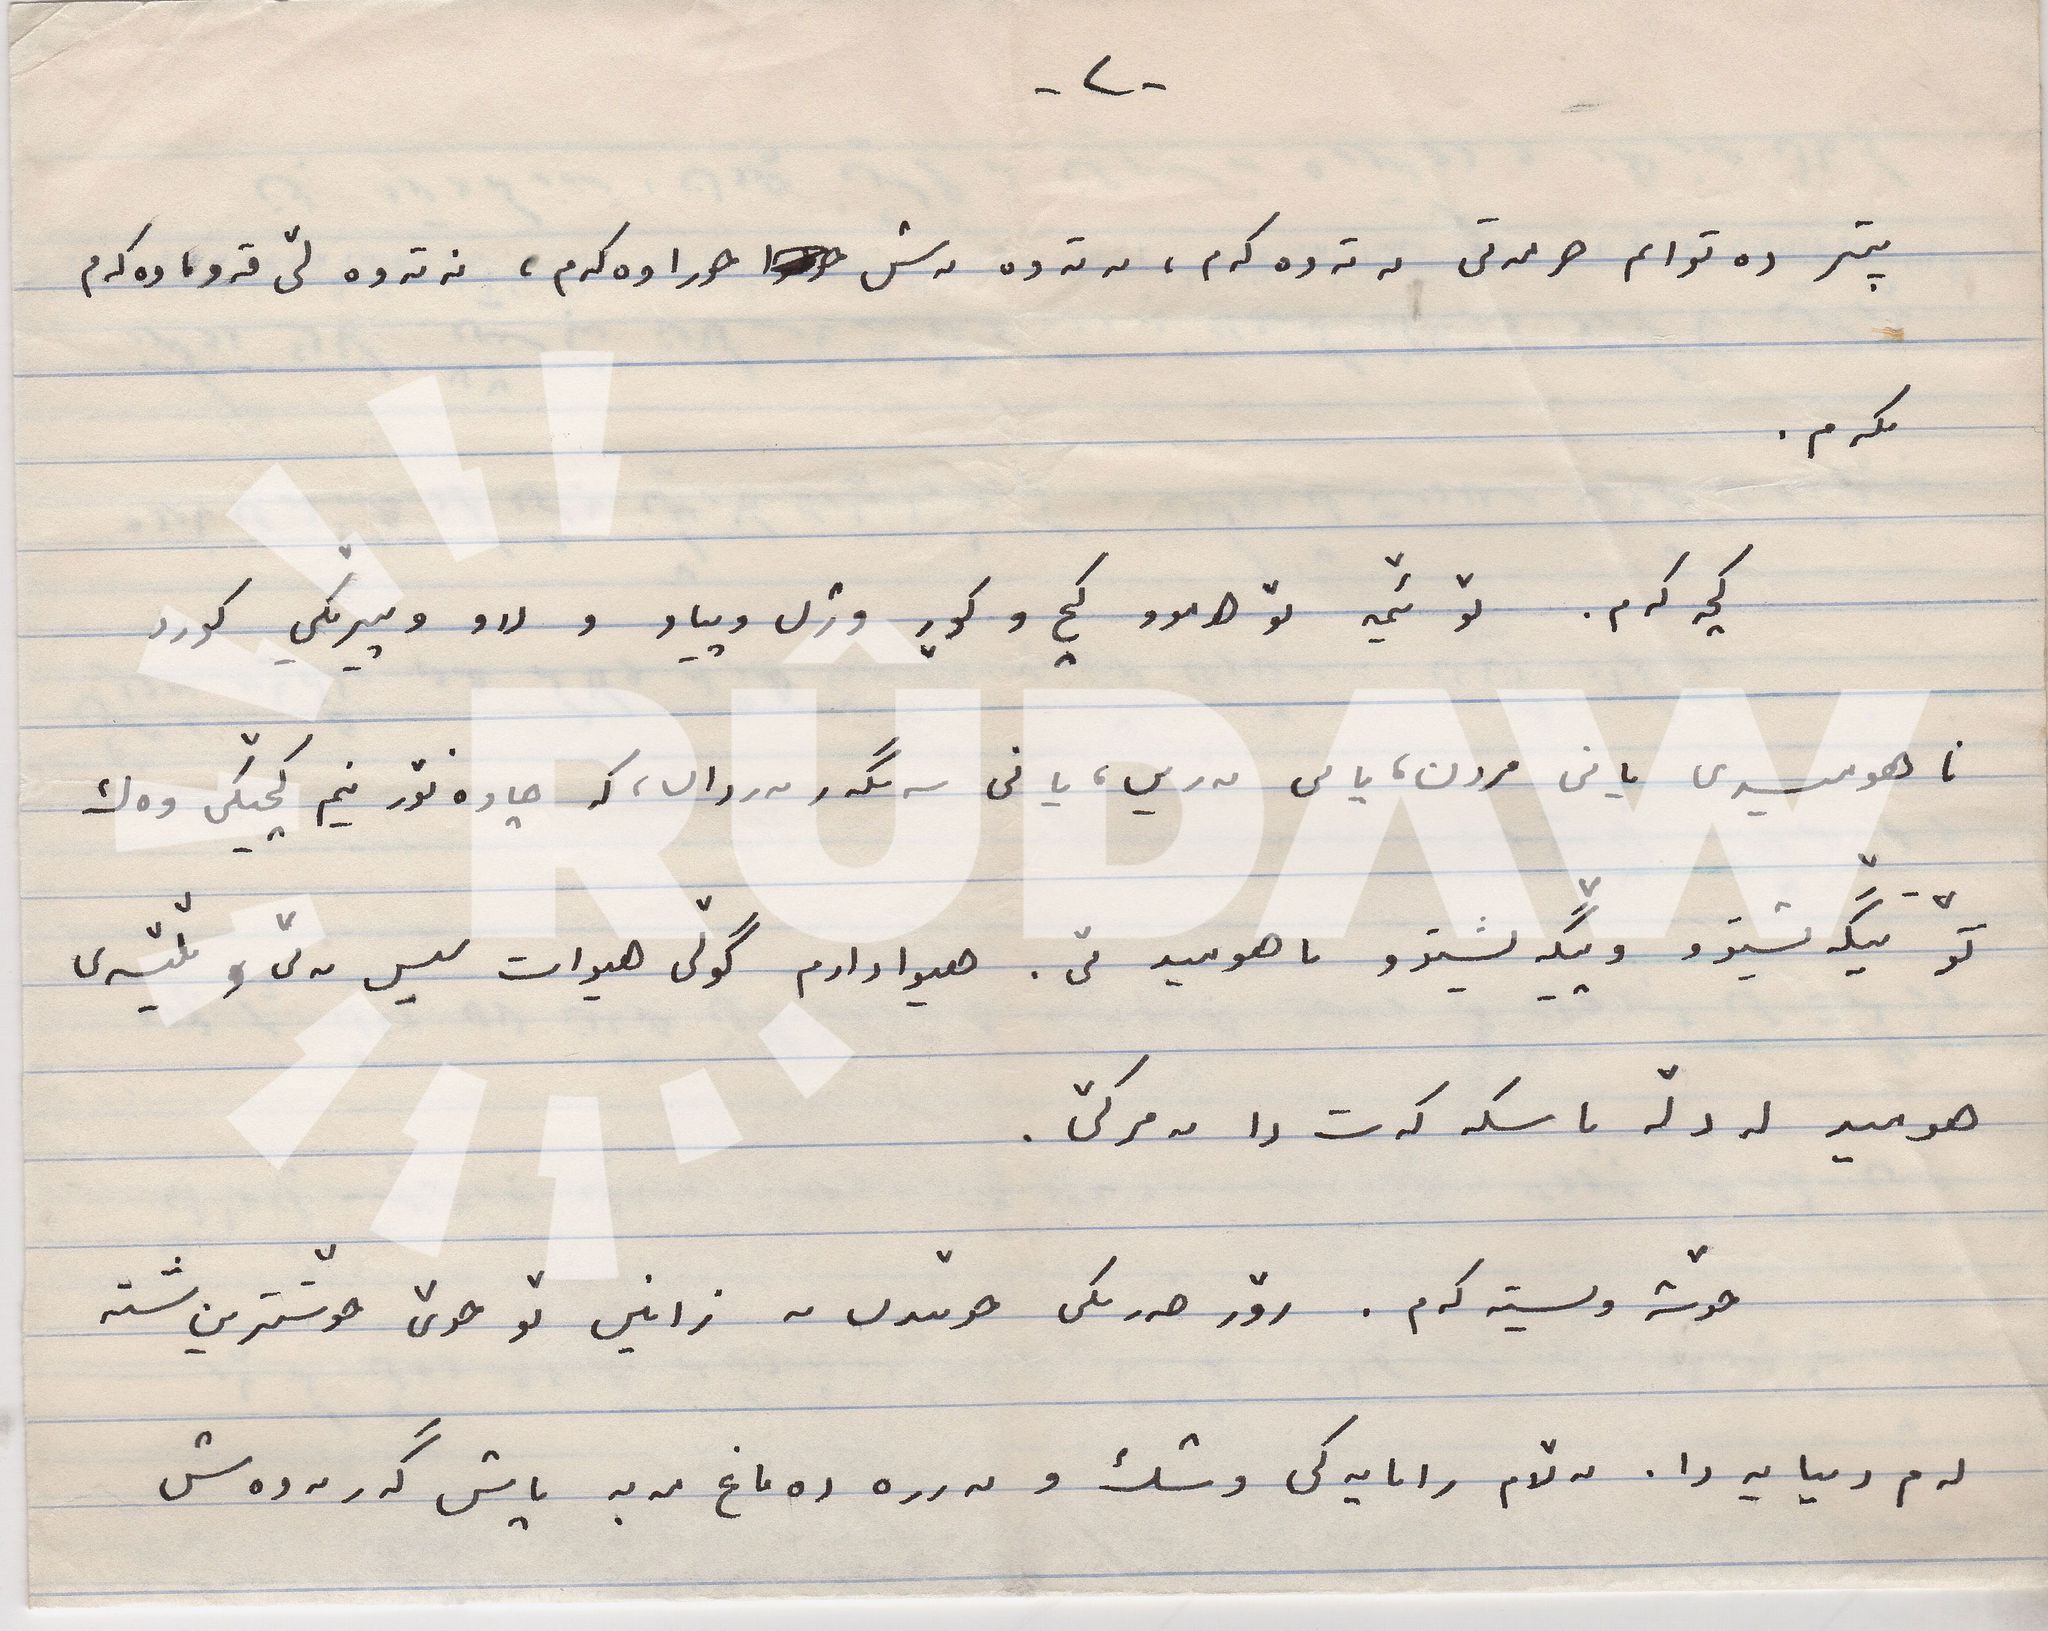 -٢-
پتر دەتوانم خزمەتی نەتەوەکەم، نەتەوە بەش خوراوەکەم، نەتەوە لێ قەوماوەکەم
بکەم.
کچەکەم. بۆ ئێمە بۆ هەموو کچ و کوڕ و ژن و پیاو و لاو و پیرێکی کورد
ناهومیدی یانی مردن، یانی بەزین، یانی سەنگەر بەردان، کە چاوەنۆڕ نیم کچێکی وەک
تۆ تێگەیشتوو و پێگەیشتوو ناهومید بێ. هیوادارم گوڵی هیوات سیس نەبێ و بڵێسەی
هومید لە دڵە ناسکەکەت دا نەمرکێ.
خۆشەویستەکەم. زۆر خەریکی خوێندن بە زانین بۆ خۆی خۆشترین شتە
لەم دنیایەدا. بەڵام زانایەکی وشک و بەرزە دەماغ مەبە پاش گەڕانەوەش
RÛDAW